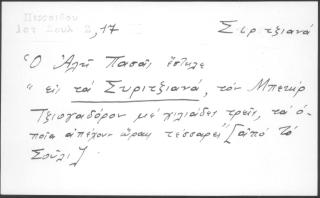 Περραιβού
Ιστ Σουλ 2, 17 Σιριτζιανά
Ὁ Ἀλῆ Πασᾶς ἔστειλε
"εἰς τά Συριτζιανά, τόν Μπεκίρ
Τζιογαδόρον μέ χιλιάδες τρεῖς, τά ὁ-
ποῖα ἀπέχουν ὥρας τέσσαρες" [ἀπό τό
Σοῦλι]